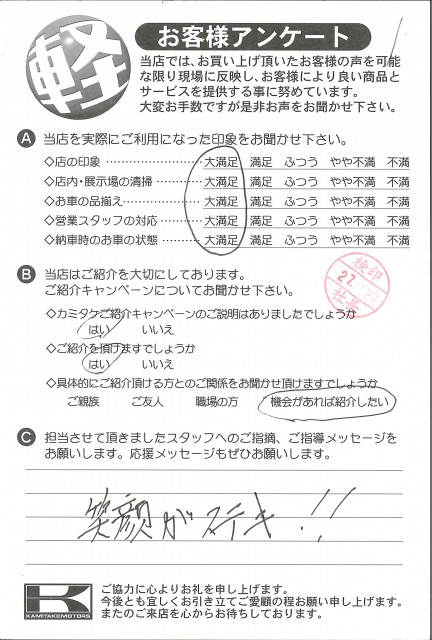 軽
お客様アンケート
当店では、お買い上げ頂いたお客様の声を可能
な限り現場に反映し、お客様により良い商品と
サービスを提供する事に努めています。
大変お手数ですが是非お声をお聞かせ下さい。
A 当店を実際にご利用になった印象をお聞かせ下さい。
◇店の印象 ………………… 大満足 満足 ふつう やや不満 不満
◇店内・展示場の清掃 ……… 大満足 満足 ふつう やや不満 不満
◇お車の品揃え ……………… 大満足 満足 ふつう やや不満 不満
◇営業スタッフの対応 ……… 大満足 満足 ふつう やや不満 不満
◇納車時のお車の状態 ……… 大満足 満足 ふつう やや不満 不満
B 当店はご紹介を大切にしております。
ご紹介キャンペーンについてお聞かせ下さい。
検印
27
社長
◇カミタケご紹介キャンペーンのご説明はありましたでしょうか
はい いいえ
◇ご紹介を頂けますでしょうか
はい いいえ
◇具体的にご紹介頂ける方とのご関係をお聞かせ頂けますでしょうか
ご親族 ご友人 職場の方 機会があれば紹介したい
C 担当させて頂きましたスタッフへのご指摘、ご指導メッセージを
お願いします。応援メッセージもぜひお願いします。
笑顔がステキ!!
K
KAMITAKEMOTORS
ご協力に心よりお礼を申し上げます。
今後とも宜しくお引き立てご愛顧の程お願い申し上げます。
またのご来店を心からお待ちしております。